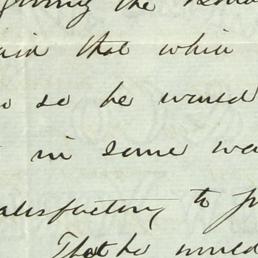 giving the
said that which
so he would
in some
satisfactory to
That he would